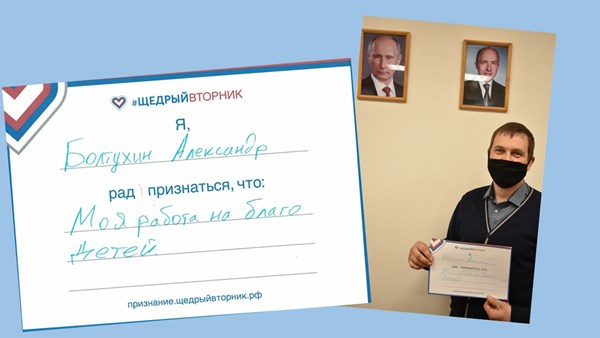 #ЩЕДРЫЙВТОРНИК
Я,
Болтухин Александр
рад признаться, что:
Моя работа на благо
детей.
признание.щедрыйвторник.рф
ЩЕДРЫЙВТОРНИК
Я